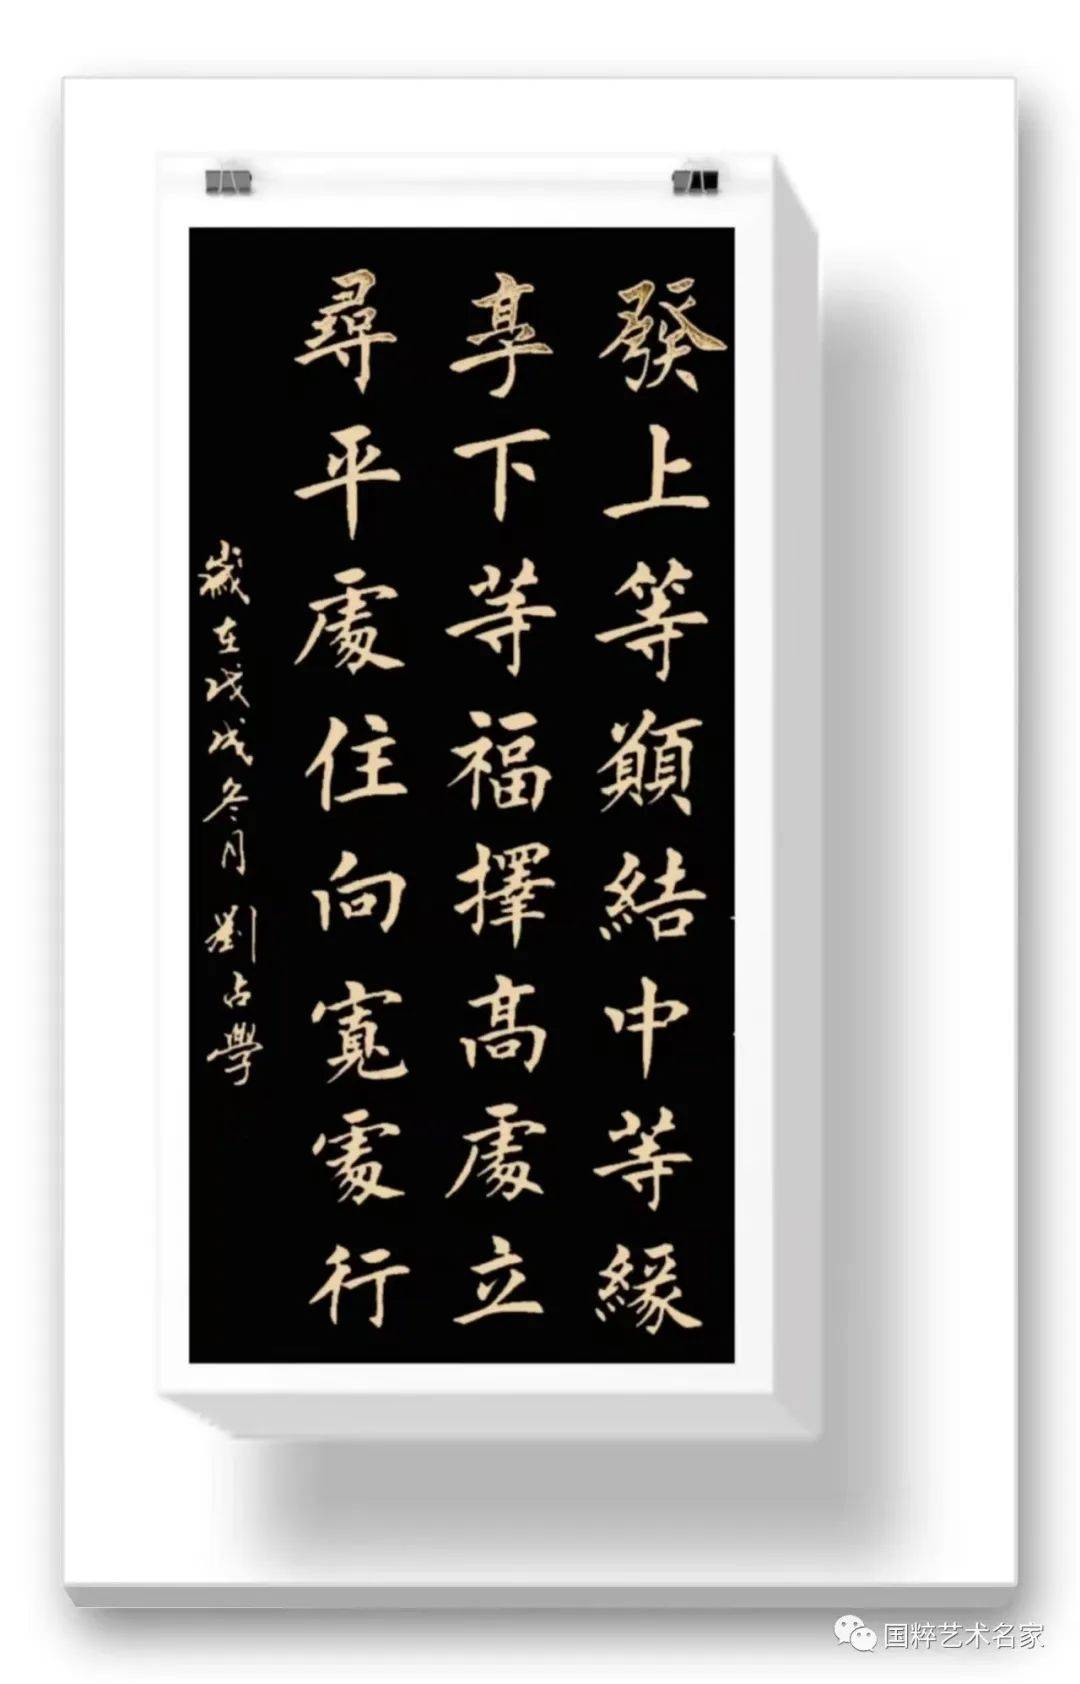 發上等願結中等緣
享下等福擇高處立
尋平處住向寬處行
歲在戊戌冬月 劉占學
国粹艺术名家